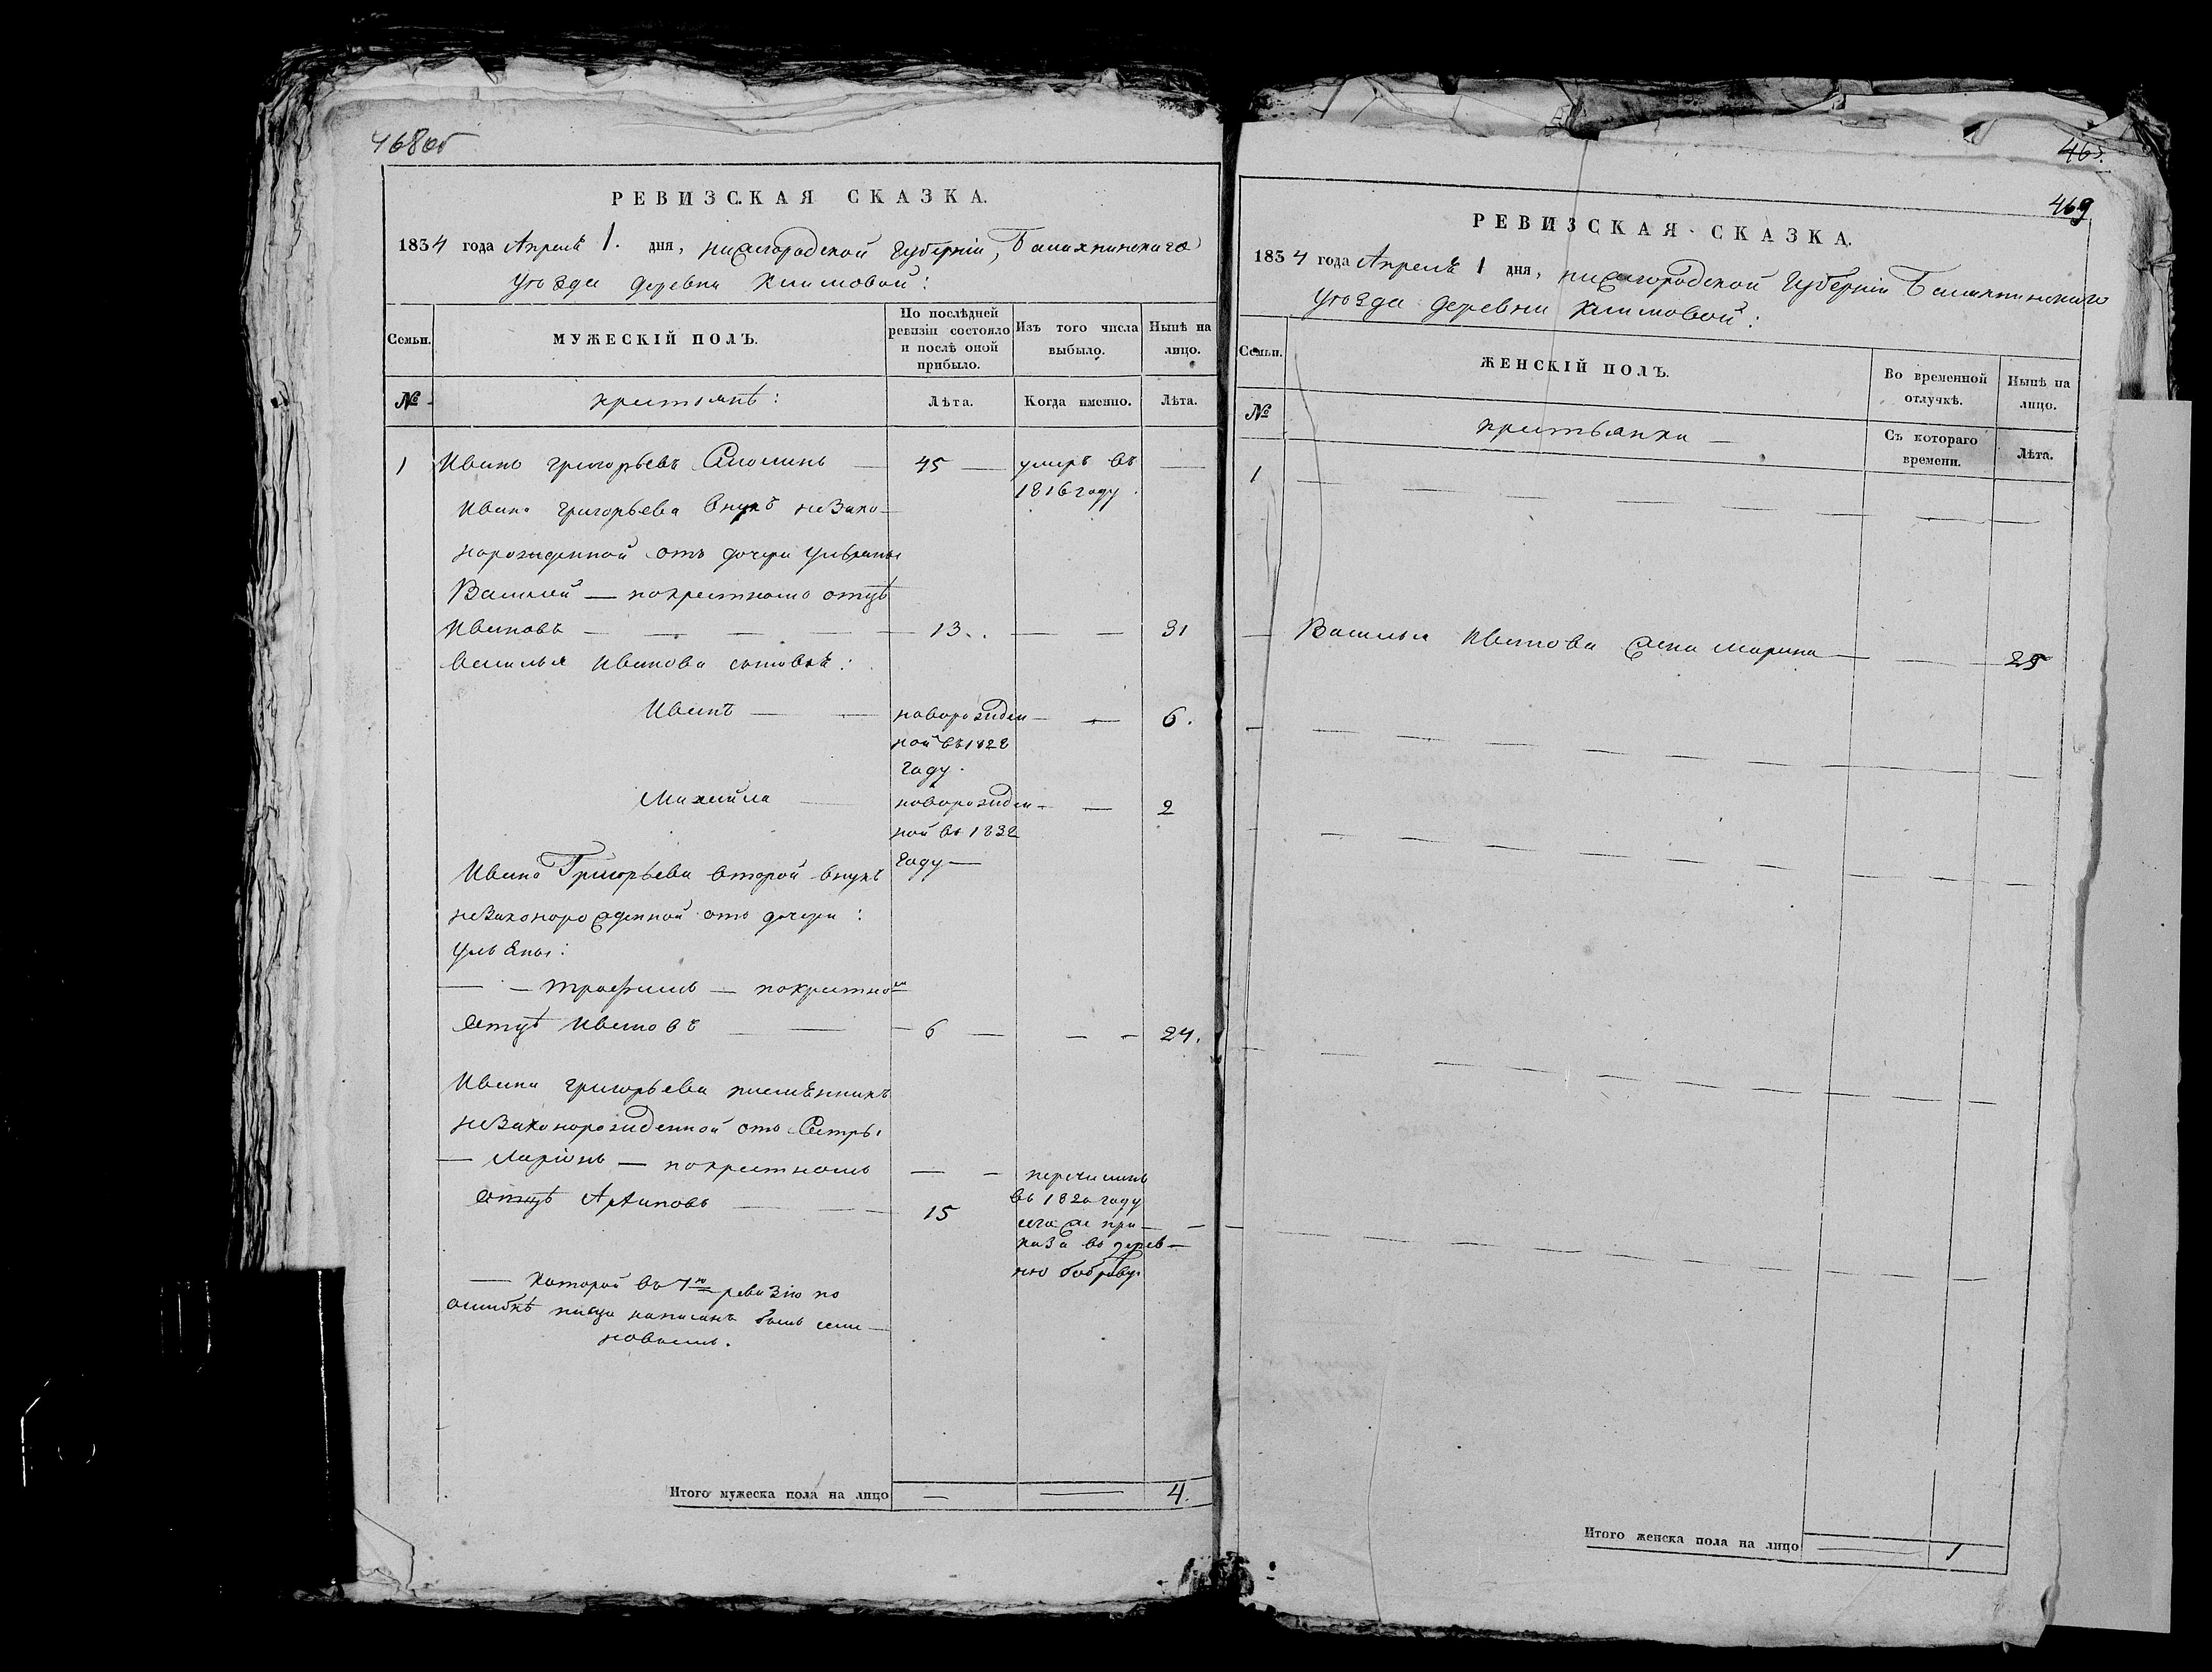 468об
РЕВИЗСКАЯ СКАЗКА.
1834 года Апреля 1. дня, нижегородской губерніи, Балахнинскаго
уѣзда деревни Климовой:
Семьи.
МУЖЕСКІЙ ПОЛЪ.
По послѣдней ревизіи состояло и послѣ оной прибыло.
Изъ того числа выбыло.
Нынѣ на лицо.
№
крестьянѣ:
Лѣта.
Когда именно.
Лѣта.
1 Иванъ григорьевъ — 45 — умеръ въ —
1816 году.
Ивана григорьева внукъ незако-
норожденной отъ дочери ульяны
Василей — покрестному отцѣ
Ивановъ — — — — 13. — — 31
василья Иванова сыновья:
Иванъ — — новорожден — — 6.
ной въ 1828
году.
Михайла — новорожден — — 2
ной въ 1832
году —
Ивана Григорьева второй внукъ
незаконорожденной отъ дочери:
ульяны:
— — трофимъ — покрестном
отцѣ Ивановъ — — — 6 — — — 24.
Ивана григорьева племянникъ
незаконорожденной отъ Сестры
— Ларіонъ — покрестномъ — — перечисленъ
отцѣ Архиповъ — — — 15
въ 1820 году
сегожъ при-
каза въ дерев-
ню боброву
— Которой въ 7ю ревизію по
ошибкѣ писца написанъ былъ
новымъ.
Итого мужеска пола на лицо — — 4.
469
РЕВИЗСКАЯ СКАЗКА.
1834 года Апреля 1 дня, нижегородской губерніи Балахнинскаго
уѣзда деревни Климовой:
Семьи.
ЖЕНСКІЙ ПОЛЪ.
Во временной отлучкѣ.
Нынѣ на лицо.
№
крестьянки —
Съ котораго времени.
Лѣта.
1 — — — — — — —
— Василья Иванова жена марина — — 25
Итого женска пола на лицо — 1